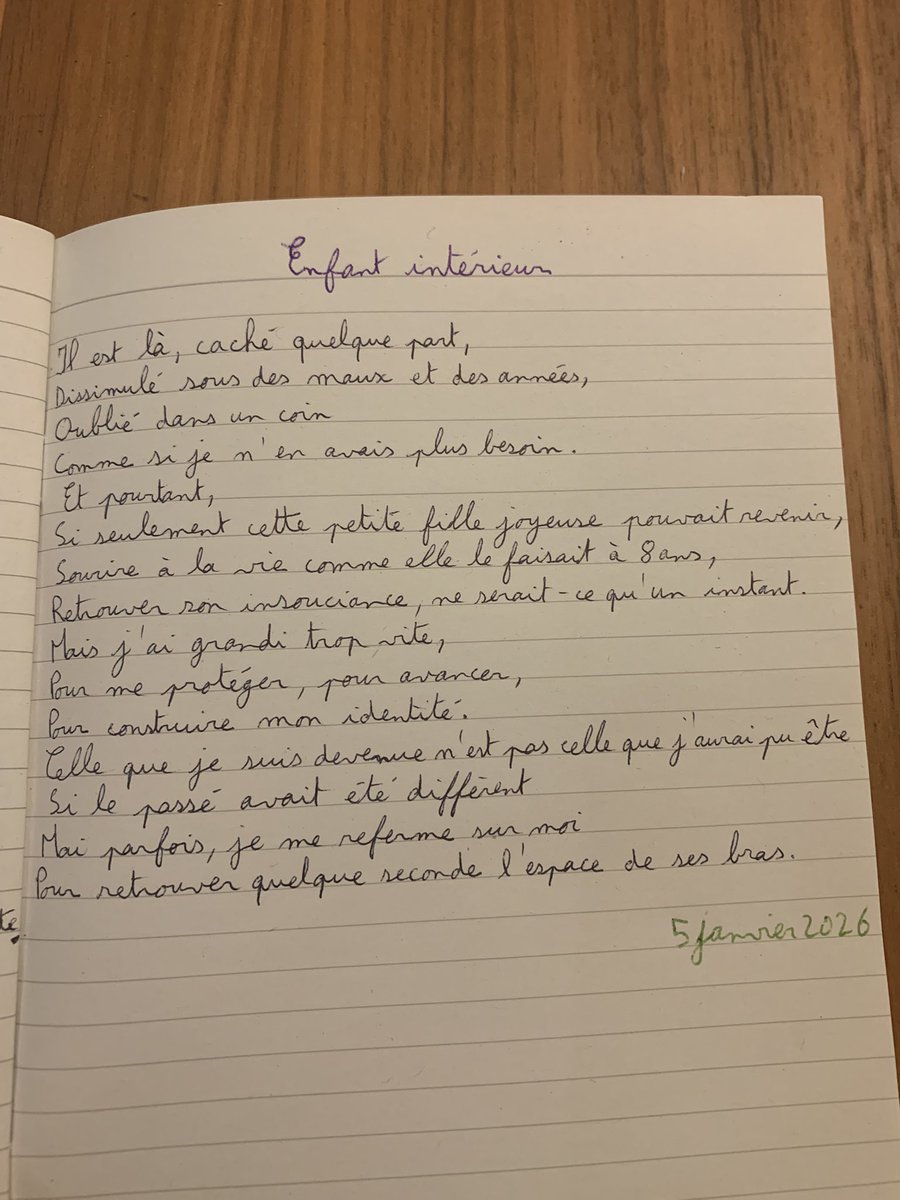 Enfant intérieur
Il est là, caché quelque part,
Dissimulé sous des maux et des années,
Oublié dans un coin
Comme si je n'en avais plus besoin.
Et pourtant,
Si seulement cette petite fille joyeuse pouvait revenir,
Sourire à la vie comme elle le faisait à 8 ans,
Retrouver son insouciance, ne serait-ce qu'un instant.
Mais j'ai grandi trop vite,
Pour me protéger, pour avancer,
Pour construire mon identité.
Celle que je suis devenue n'est pas celle que j'aurai pu être
Si le passé avait été différent
Mai parfois, je me referme sur moi
Pour retrouver quelque seconde l'espace de ses bras.
te
5 janvier 2026